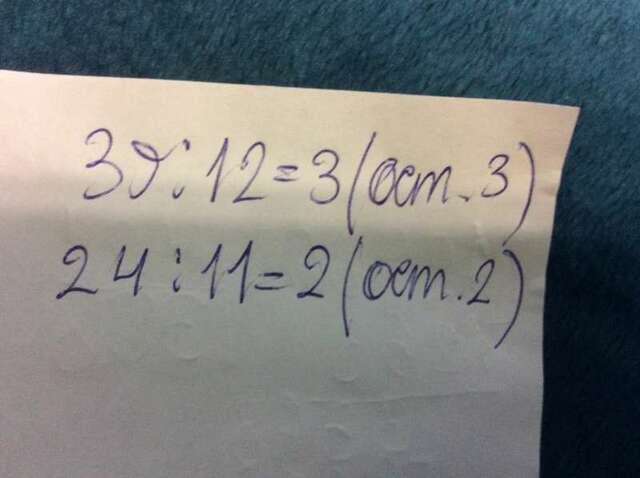 39:12=3(ост.3)
24:11=2(ост.2)